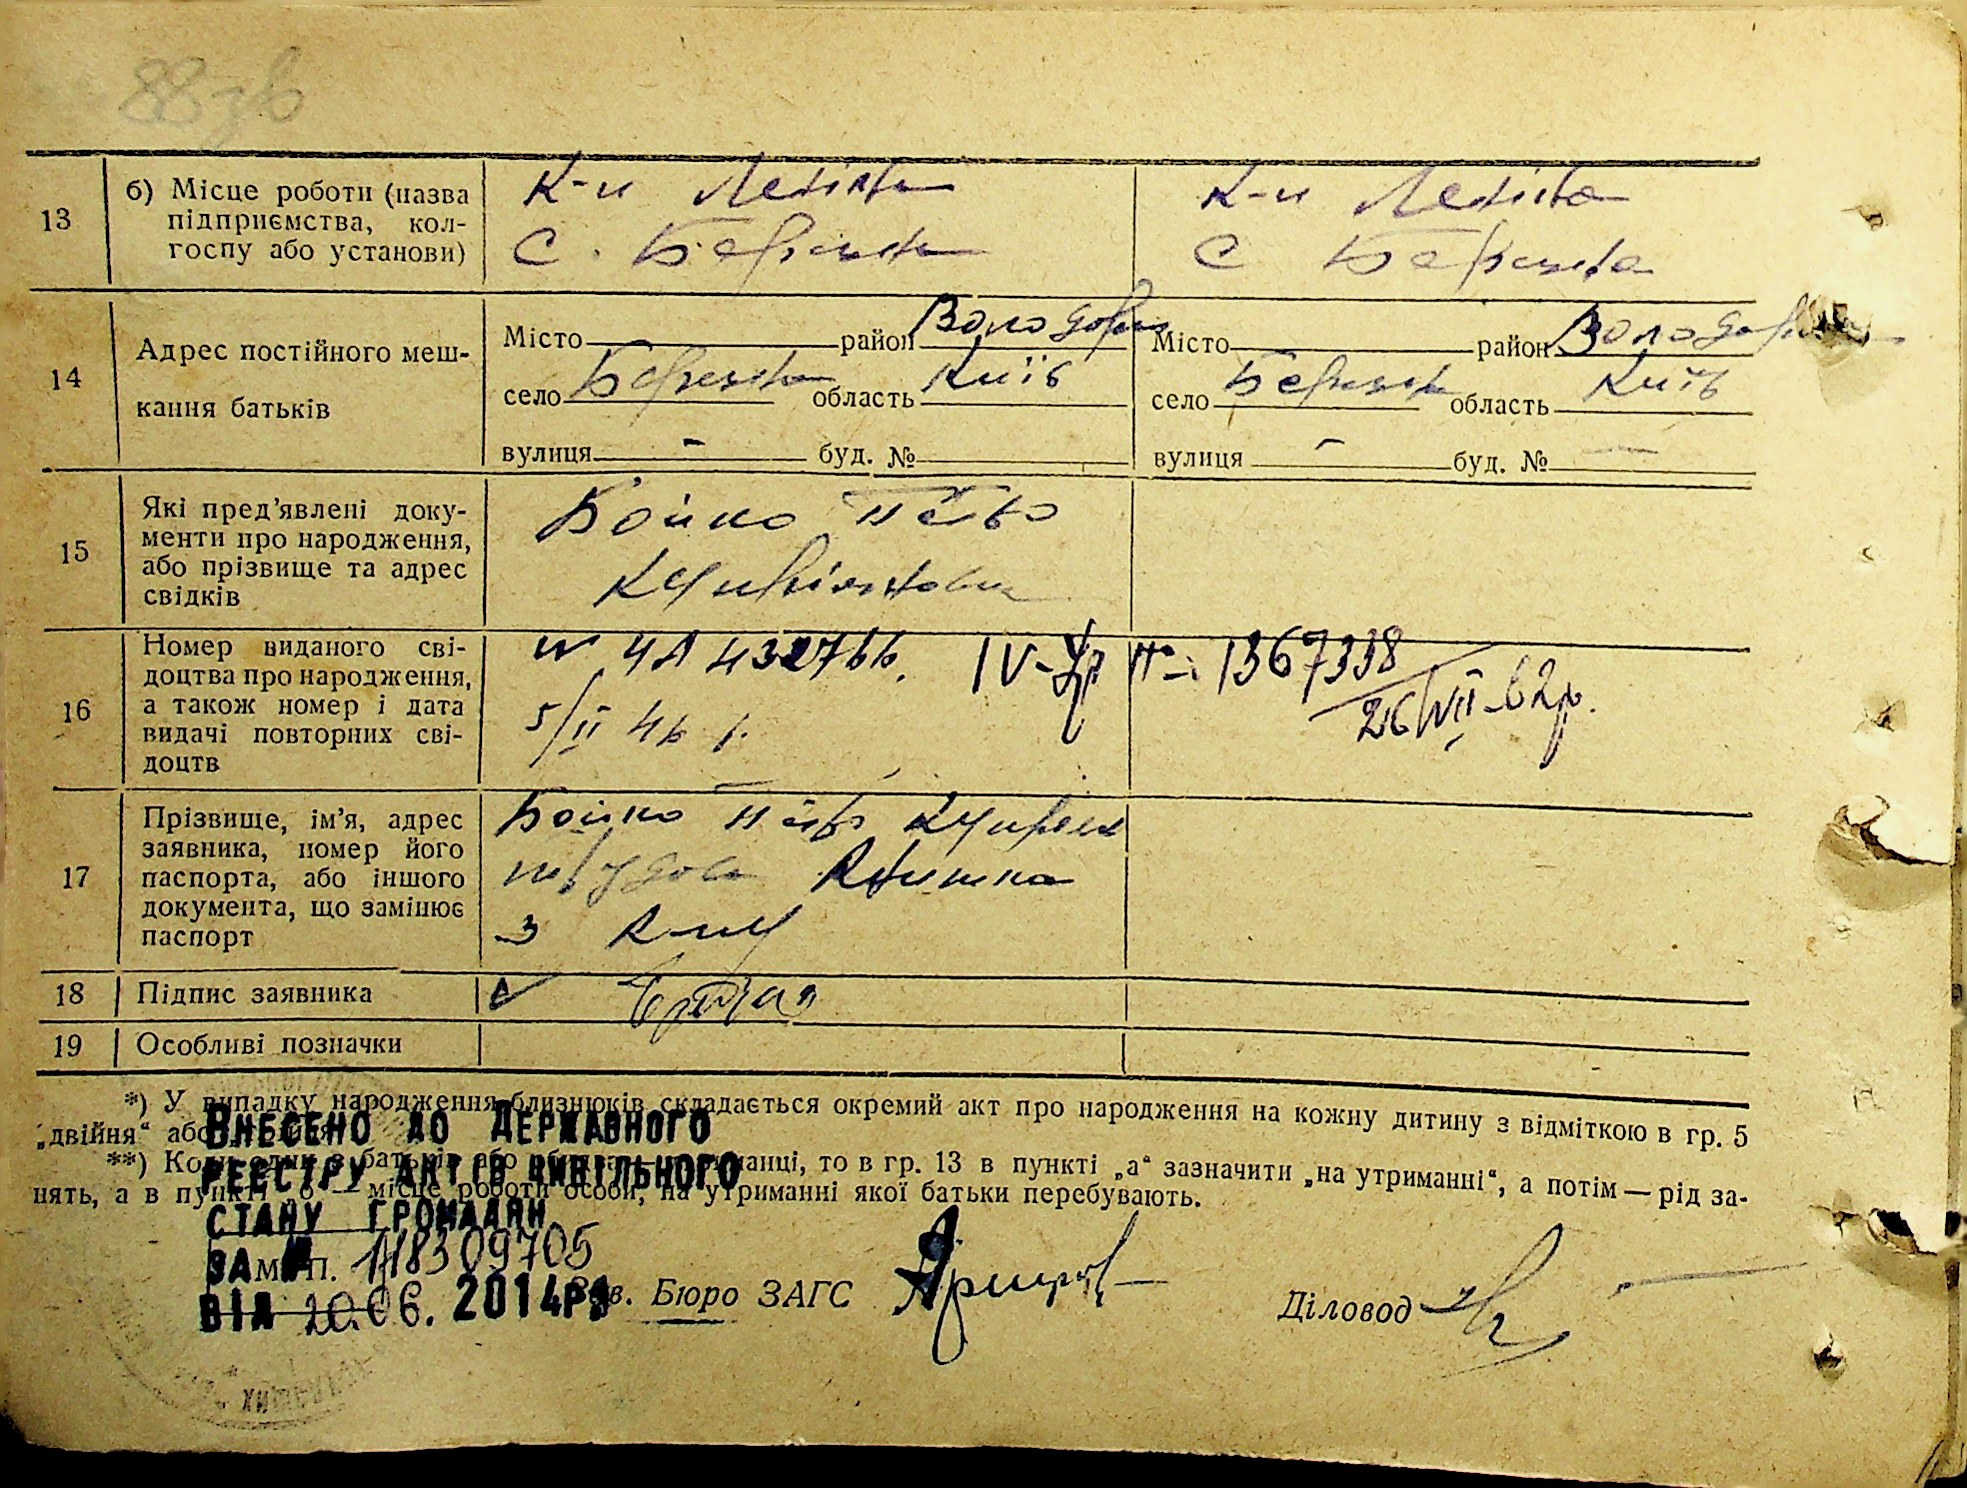 88зв
13
б) Місце роботи (назва
підприємства, кол-
госпу або установи)
К-п Леніна
С. Березна
К-п Леніна
С Березна
14
Адрес постійного меш-
кання батьків
Місто район Володар
село область Київ
вулиця - буд. №
Місто район Володар
село область Київ
вулиця - буд. №
15
Які пред'явлені доку-
менти про народження,
або прізвище та адрес
свідків
Бойко
16
Номер виданого сві-
доцтва про народження,
а також номер і дата
видачі повторних сві-
доцтв
№ ЧА 432766.
5/II 46 р.
IV-УР № 1367338
26/VII-62р.
17
Прізвище, ім'я, адрес
заявника, номер його
паспорта, або іншого
документа, що замінює
паспорт
Бойко
трудова книжка
з к-пу
18
Підпис заявника
19
Особливі позначки
*) У випадку народження близнюків складається окремий акт про народження на кожну дитину з відміткою в гр. 5
„двійня“ або
**) Коли один з батьків або обидва утриманці, то в гр. 13 в пункті „а“ зазначити „на утриманні“, а потім — рід за-
нять, а в пункті „б“ — місце роботи особи, на утриманні якої батьки перебувають.
Внесено до Державного
реєстру актів цивільного
стану громадян
за № 1118309705
від 20.06. 2014р.
М. П.
Зав. Бюро ЗАГС
Діловод